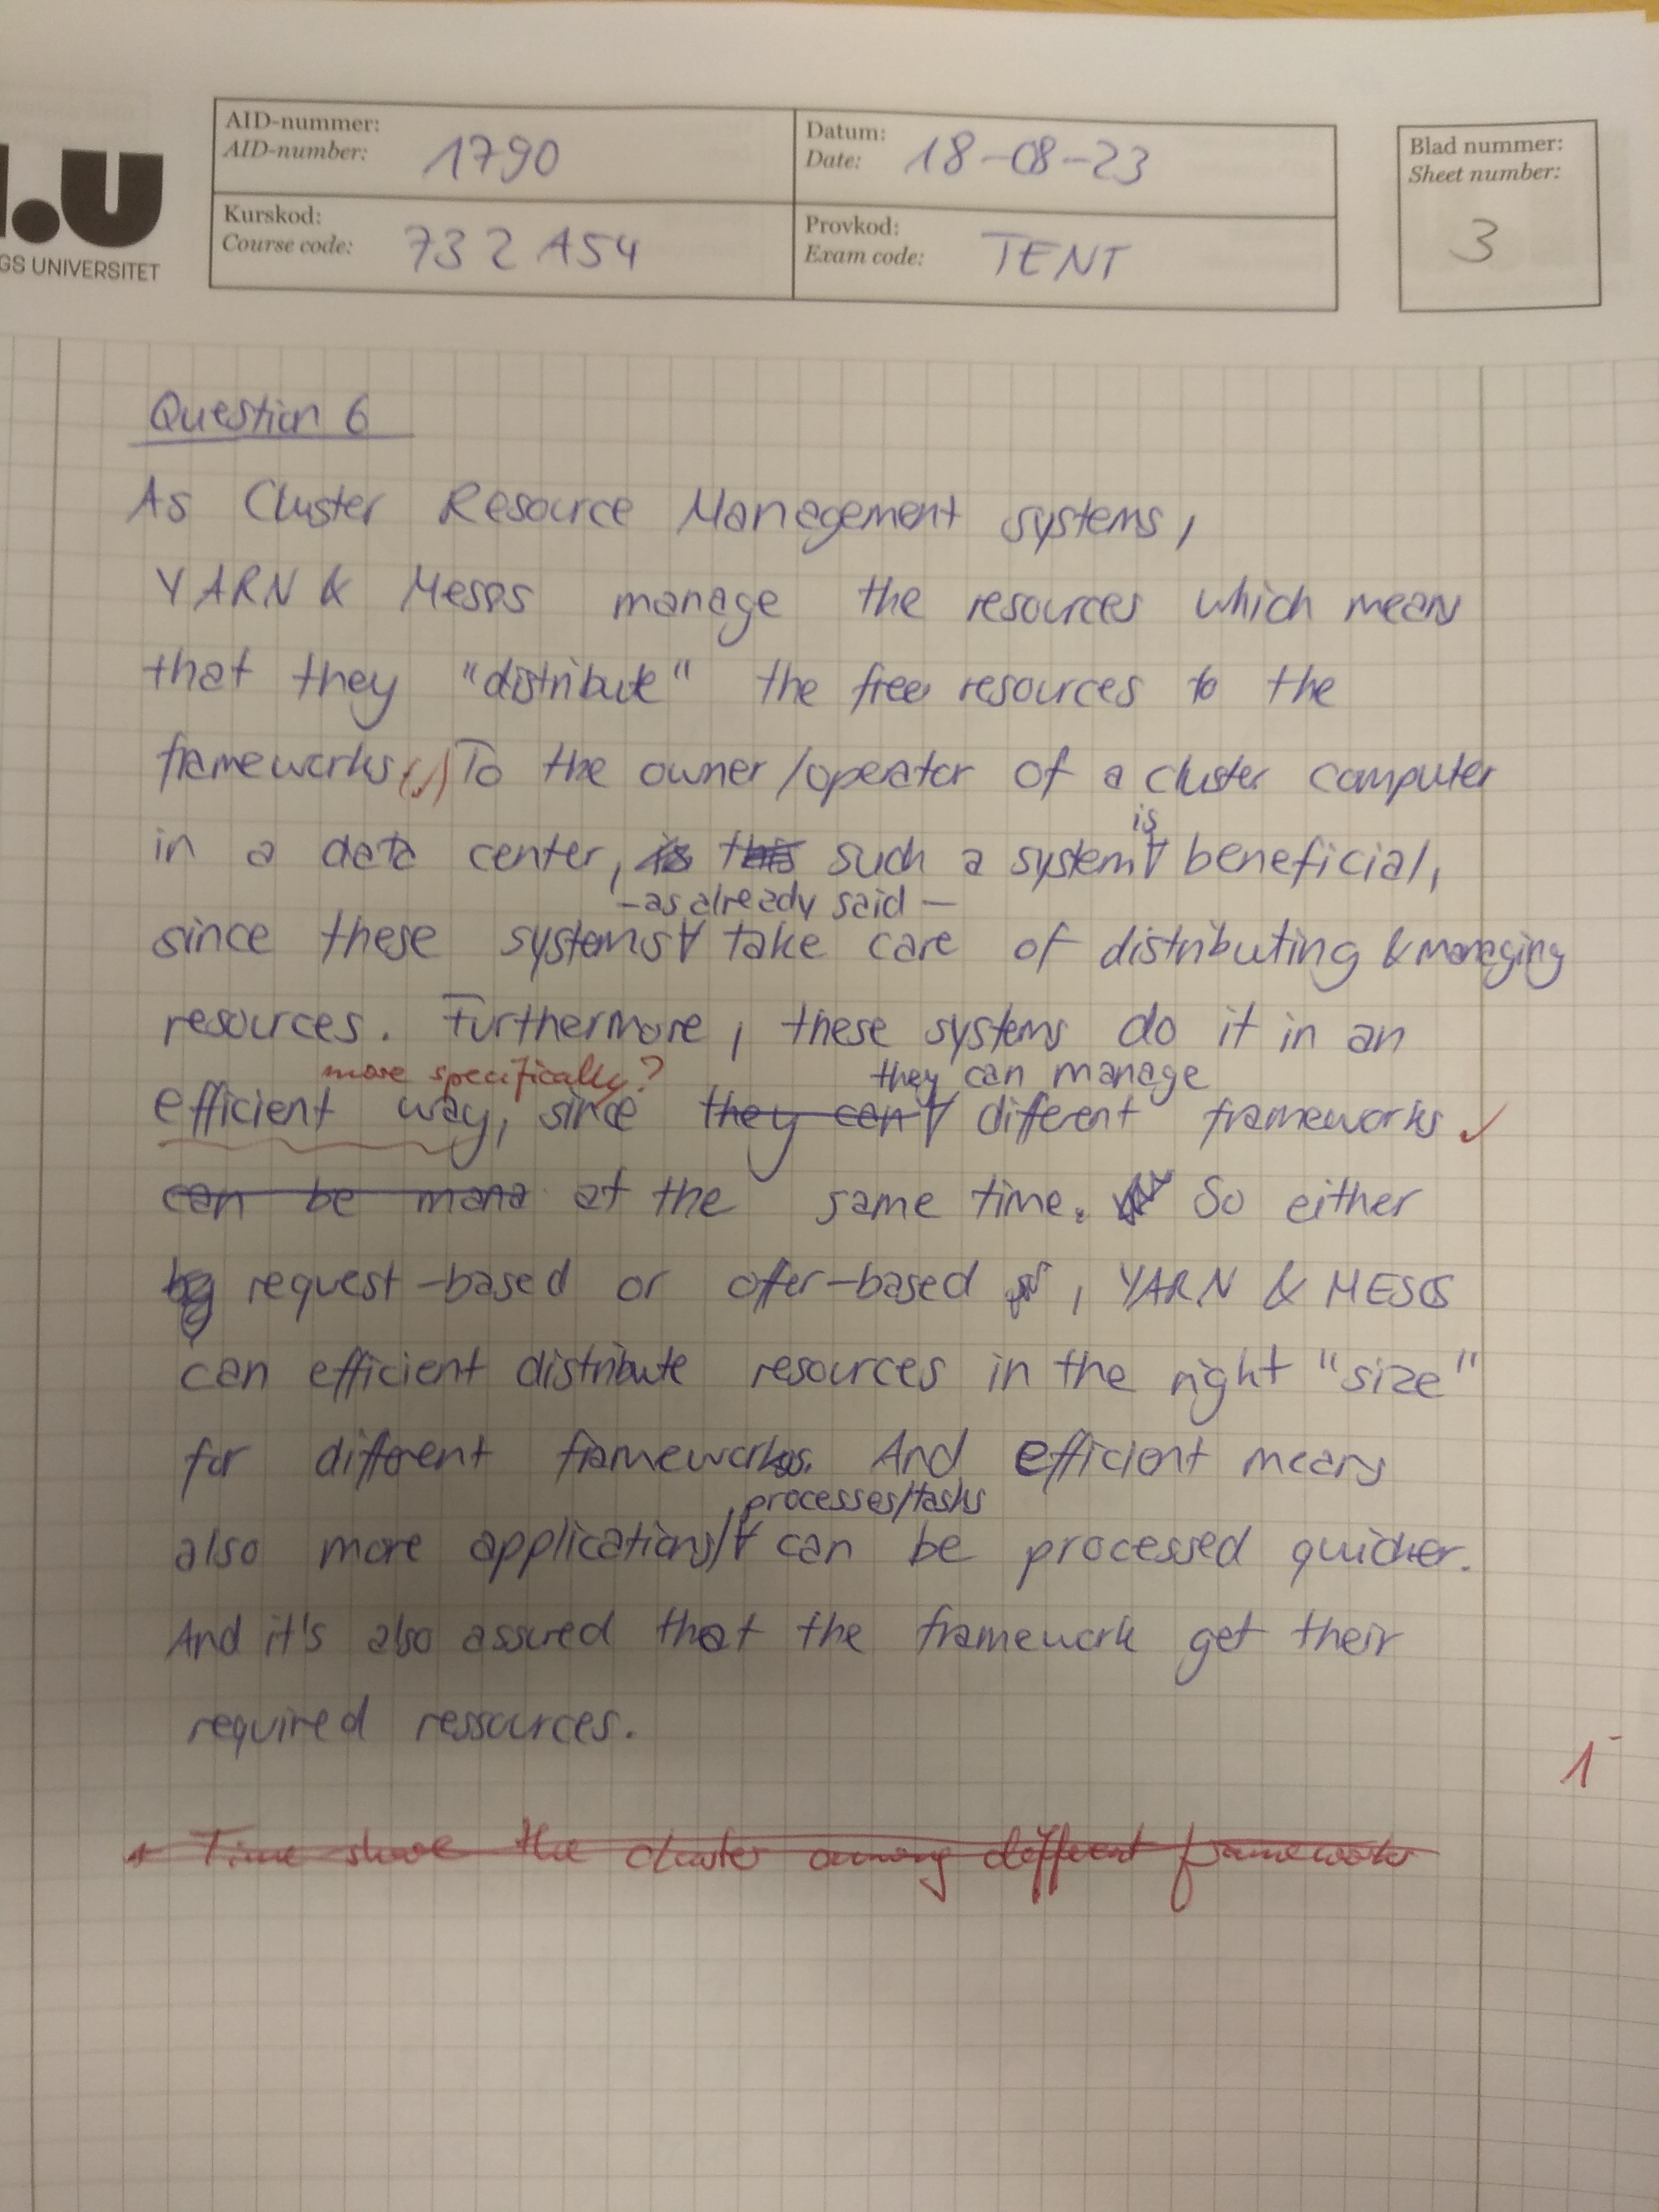 AID-nummer:
AID-number: 1790
Datum:
Date: 18-08-23
Blad nummer:
Sheet number:
3
Kurskod:
Course code: 732A54
Provkod:
Exam code: TENT
.U
GS UNIVERSITET
Question 6
As Cluster Resource Management systems,
YARN & Mesos manage the resources which mean
that they "distribute" the free resources to the
frameworks (✓) To the owner/operator of a cluster computer
is
in a data center, is this such a system beneficial,
- as already said -
since these systems take care of distributing & managing
resources. Furthermore, these systems do it in an
more specifically? they can manage
efficient way, since they can different frameworks ✓
can be mana at the same time. So either
request-based or offer-based, YARN & MESOS
can efficient distribute resources in the right "size"
for different frameworks. And efficient means
processes/tasks
also more applications/ can be processed quicker.
And it's also assured that the framework get their
required ressources.
1-
Time share the cluster among different frameworks